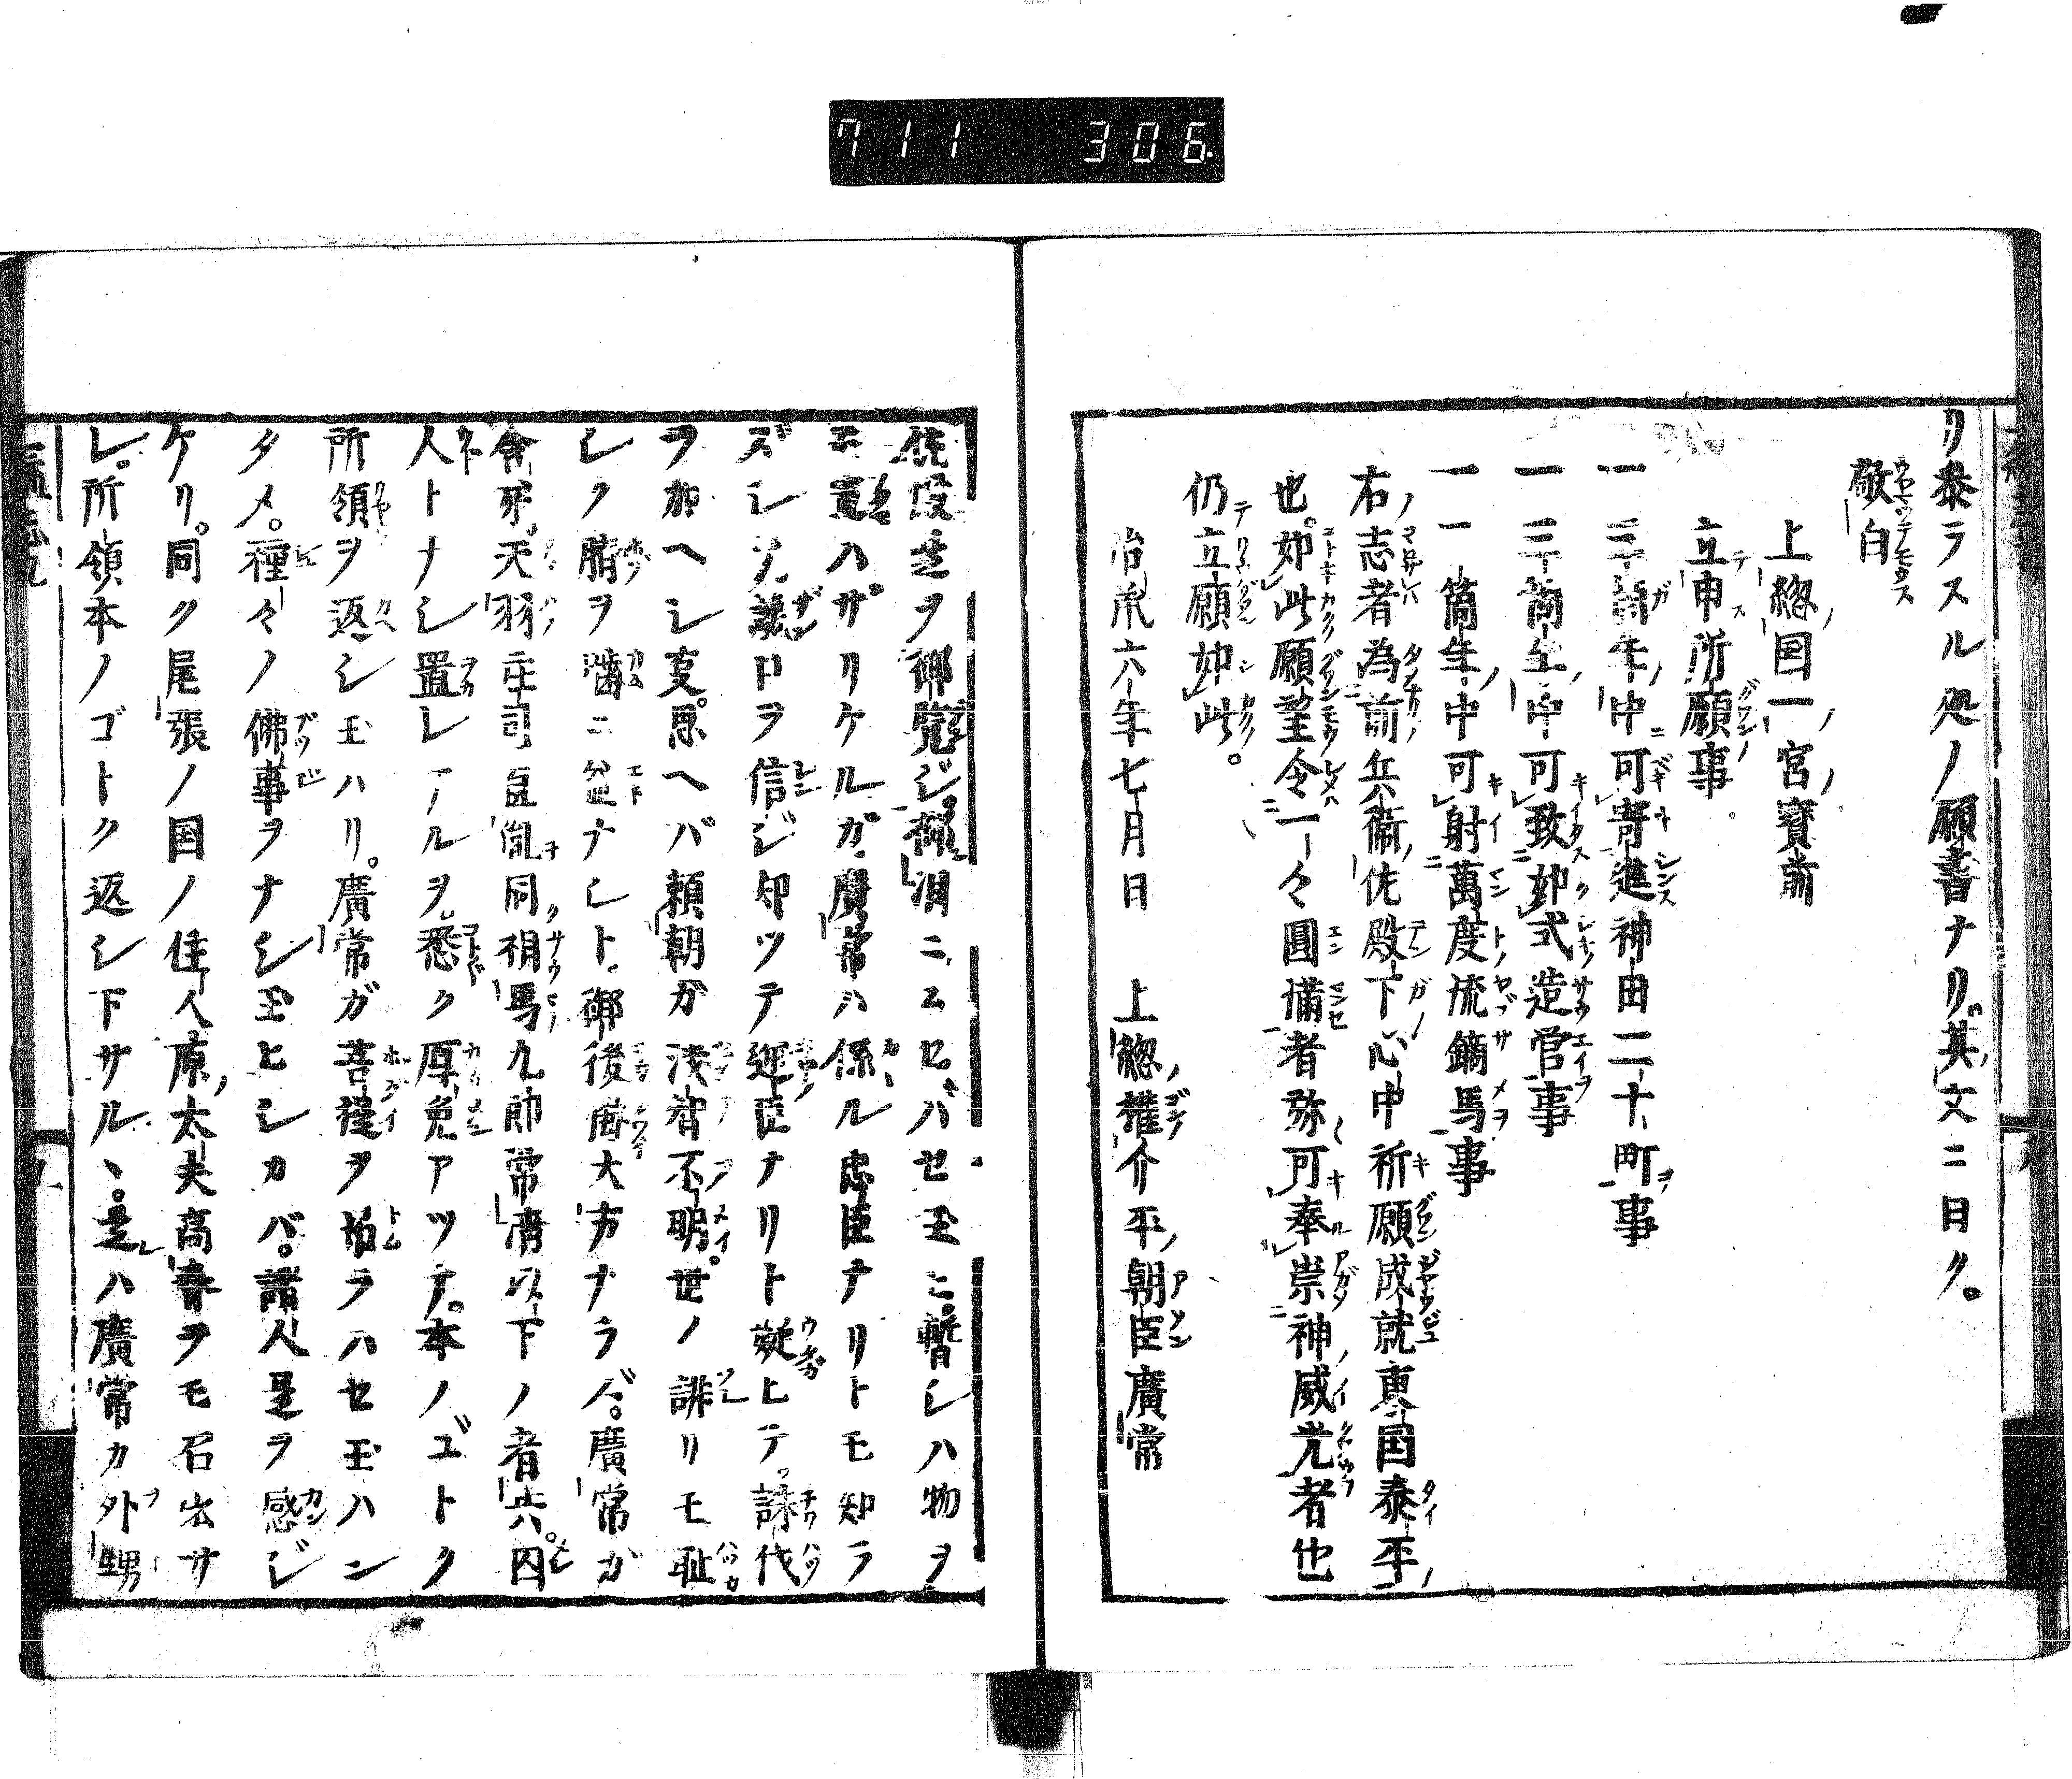 711 306.
リ泰ラスル処ノ願書ナリ。其文ニ曰ク。
敬白
上総国一宮寳前
立申所願事
一 三箇年中可寄進神田二十町事
一 三箇年中可致如式造営事
一 一箇年中可射萬度流鏑馬事
右志者為前兵衞佐殿下心中祈願成就東国泰平
也。如此願望令一々圓備者弥可奉崇神威光者也
仍立願如此。
治承六年七月日 上総權介平朝臣廣常
佐殿是ヲ御覧ジ。御涙ニムセバセ玉ヒ暫シハ物ヲ
モ宣ハザリケルガ。廣常ハ係ル忠臣ナリトモ知ラ
ズシテ。讒口ヲ信ジ却ツテ逆臣ナリト疑ヒテ。誅伐
ヲ加ヘシ支。思ヘバ頼朝ガ淺智不明。世ノ誹リモ耻
シク臍ヲ噛ニ益ナシト。御後悔大方ナラズ。廣常ガ
舎弟。天羽庄司直胤同相馬九郎常清以下ノ者共。囚
人トナシ置レアルヲ。悉ク厚免アツテ。本ノゴトク
所領ヲ返シ玉ハリ。廣常ガ菩提ヲ吊ラハセ玉ハン
タメ。種々ノ佛事ヲナシ玉ヒシカバ。諸人是ヲ感ジ
ケリ。同ク尾張ノ国ノ住人原太夫高春ヲモ召出サ
レ。所領本ノゴトク返シ下サルヽ。是ハ廣常カ外甥